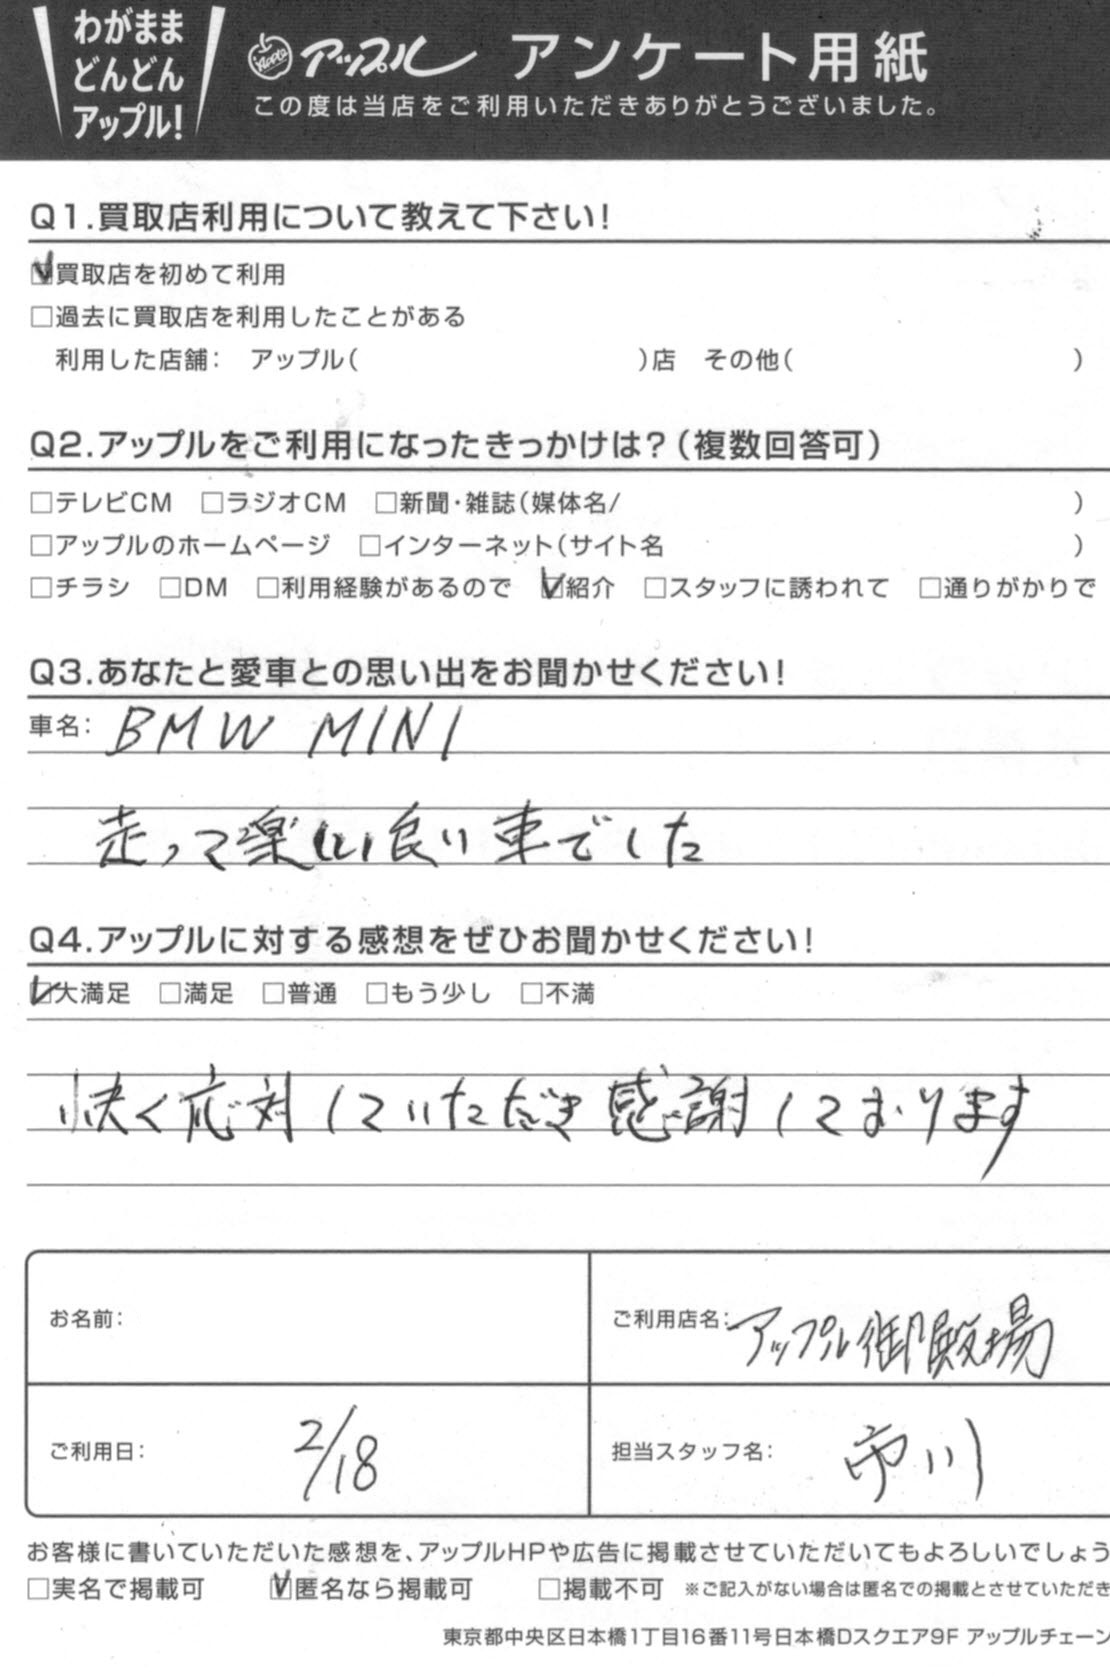 わがまま
どんどん
アップル!
Apple アップル アンケート用紙
この度は当店をご利用いただきありがとうございました。
Q1.買取店利用について教えて下さい!
☑買取店を初めて利用
□過去に買取店を利用したことがある
利用した店舗: アップル( )店 その他( )
Q2.アップルをご利用になったきっかけは?(複数回答可)
□テレビCM □ラジオCM □新聞・雑誌(媒体名/ )
□アップルのホームページ □インターネット(サイト名 )
□チラシ □DM □利用経験があるので ☑紹介 □スタッフに誘われて □通りがかりで
Q3.あなたと愛車との思い出をお聞かせください!
車名: BMW MINI
走って楽しい良い車でした
Q4.アップルに対する感想をぜひお聞かせください!
☑大満足 □満足 □普通 □もう少し □不満
快く応対していただき感謝しております
お名前:
ご利用店名: アップル御殿場
ご利用日: 2/18
担当スタッフ名: 市川
お客様に書いていただいた感想を、アップルHPや広告に掲載させていただいてもよろしいでしょう
□実名で掲載可 ☑匿名なら掲載可 □掲載不可 ※ご記入がない場合は匿名での掲載とさせていただき
東京都中央区日本橋1丁目16番11号日本橋Dスクエア9F アップルチェーン